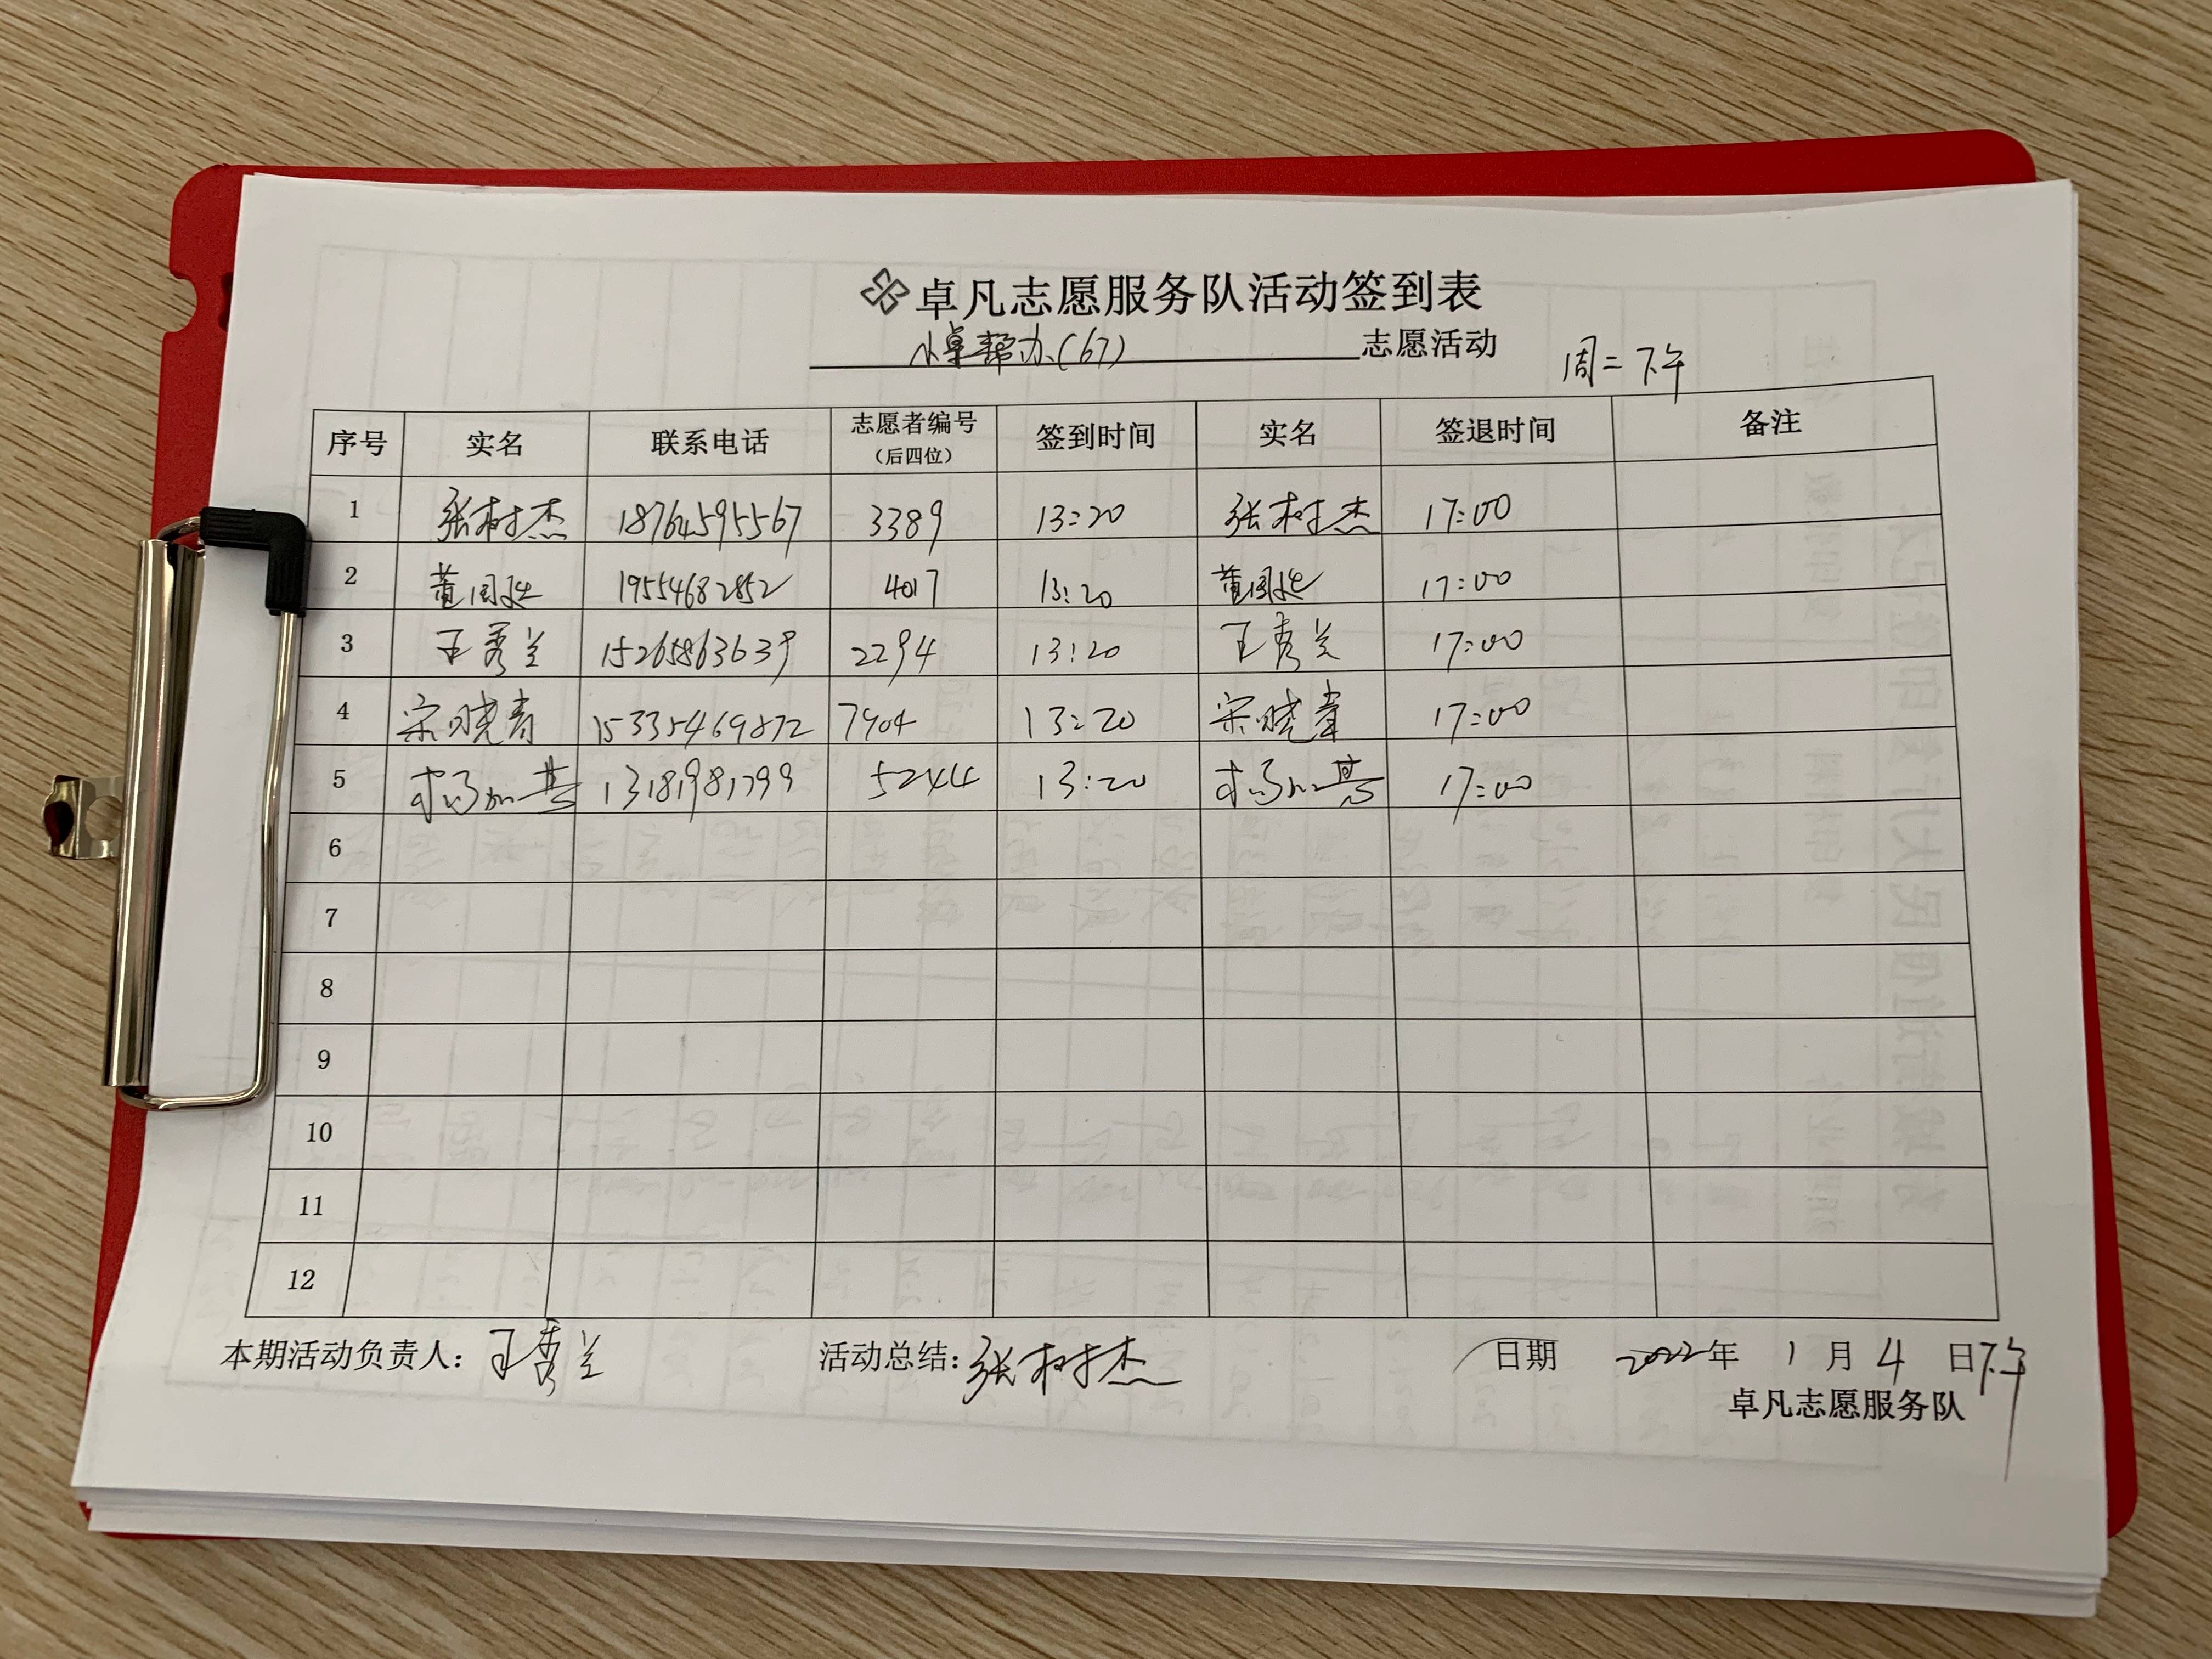 卓凡志愿服务队活动签到表
小卓帮办(67) 志愿活动 周二下午
序号 实名 联系电话 志愿者编号(后四位) 签到时间 实名 签退时间 备注
1 张树杰 18764595567 3389 13:20 张树杰 17:00
2 19554682852 4017 13:20 17:00
3 王秀兰 15265863639 2294 13:20 王秀兰 17:00
4 宋晓青 15335469872 7904 13:20 17:00
5 13181981799 5244 13:20 17:00
6
7
8
9
10
11
12
本期活动负责人: 王秀兰 活动总结: 张树杰 日期 2022年 1月 4日下午
卓凡志愿服务队